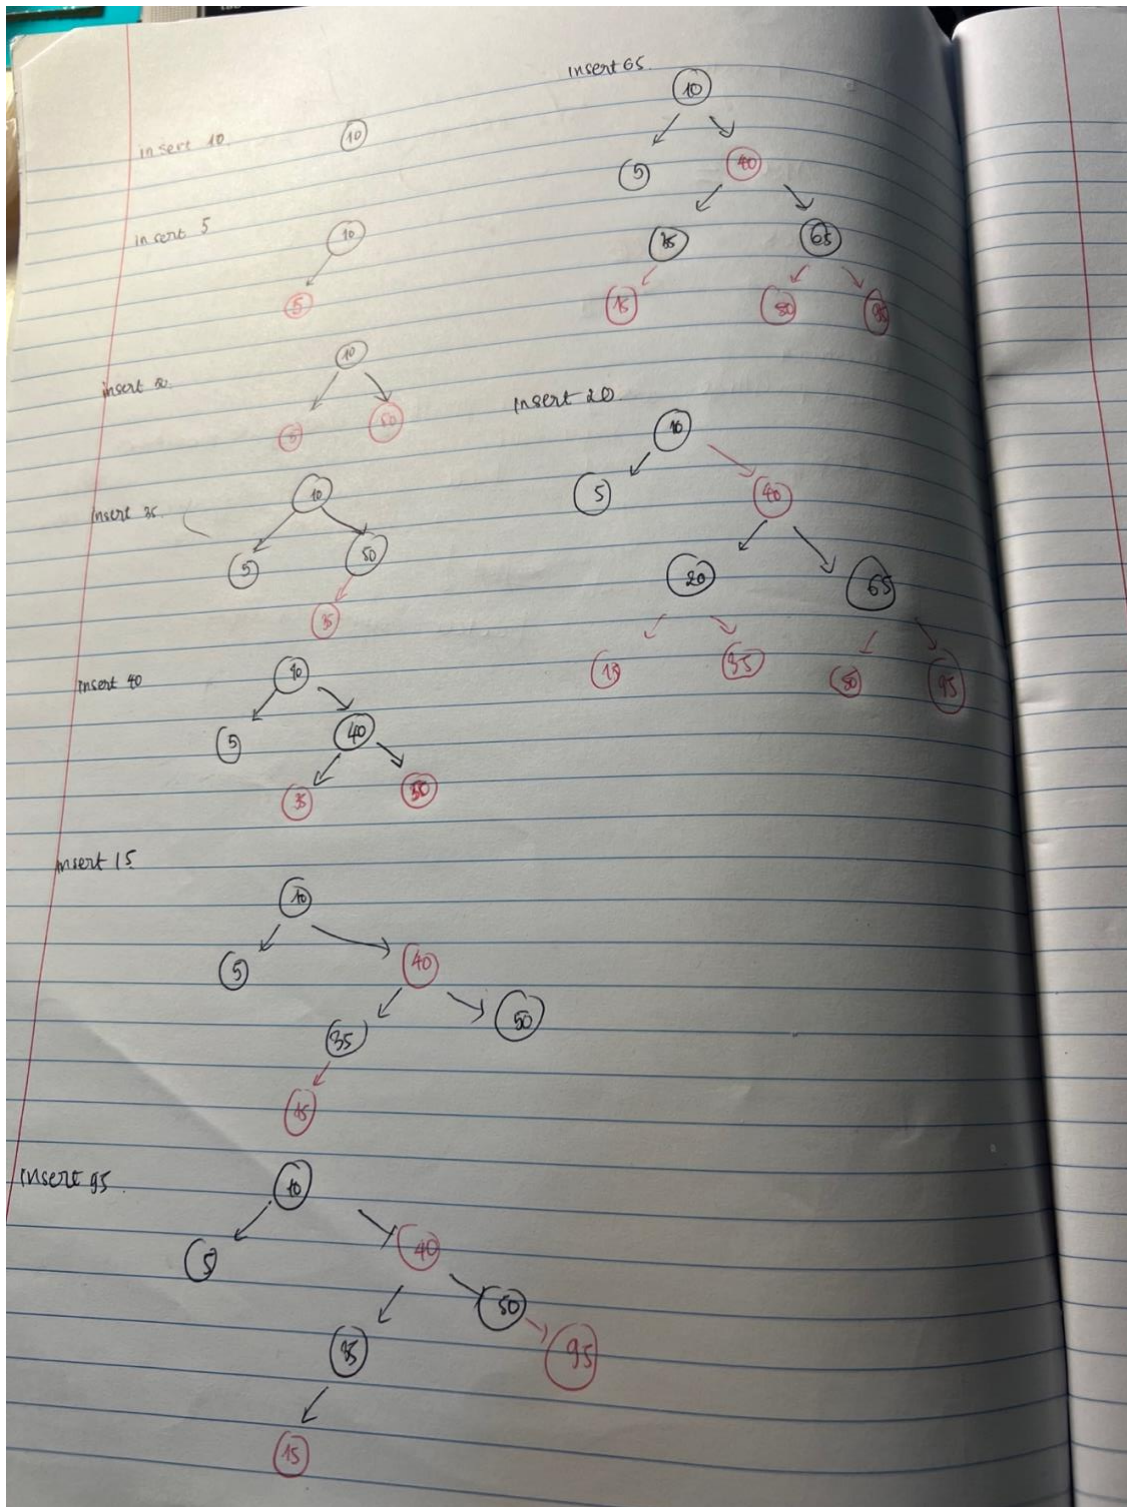 insert 10
10
insert 5
10
5
insert 50
10
5 50
insert 35
10
5 50
35
insert 40
10
5 40
35 50
insert 15
10
5 40
35 50
15
insert 95
10
5 40
50
35 95
15
insert 65
10
5 40
35 65
15 50 95
insert 20
10
5 40
20 65
15 35 50 95